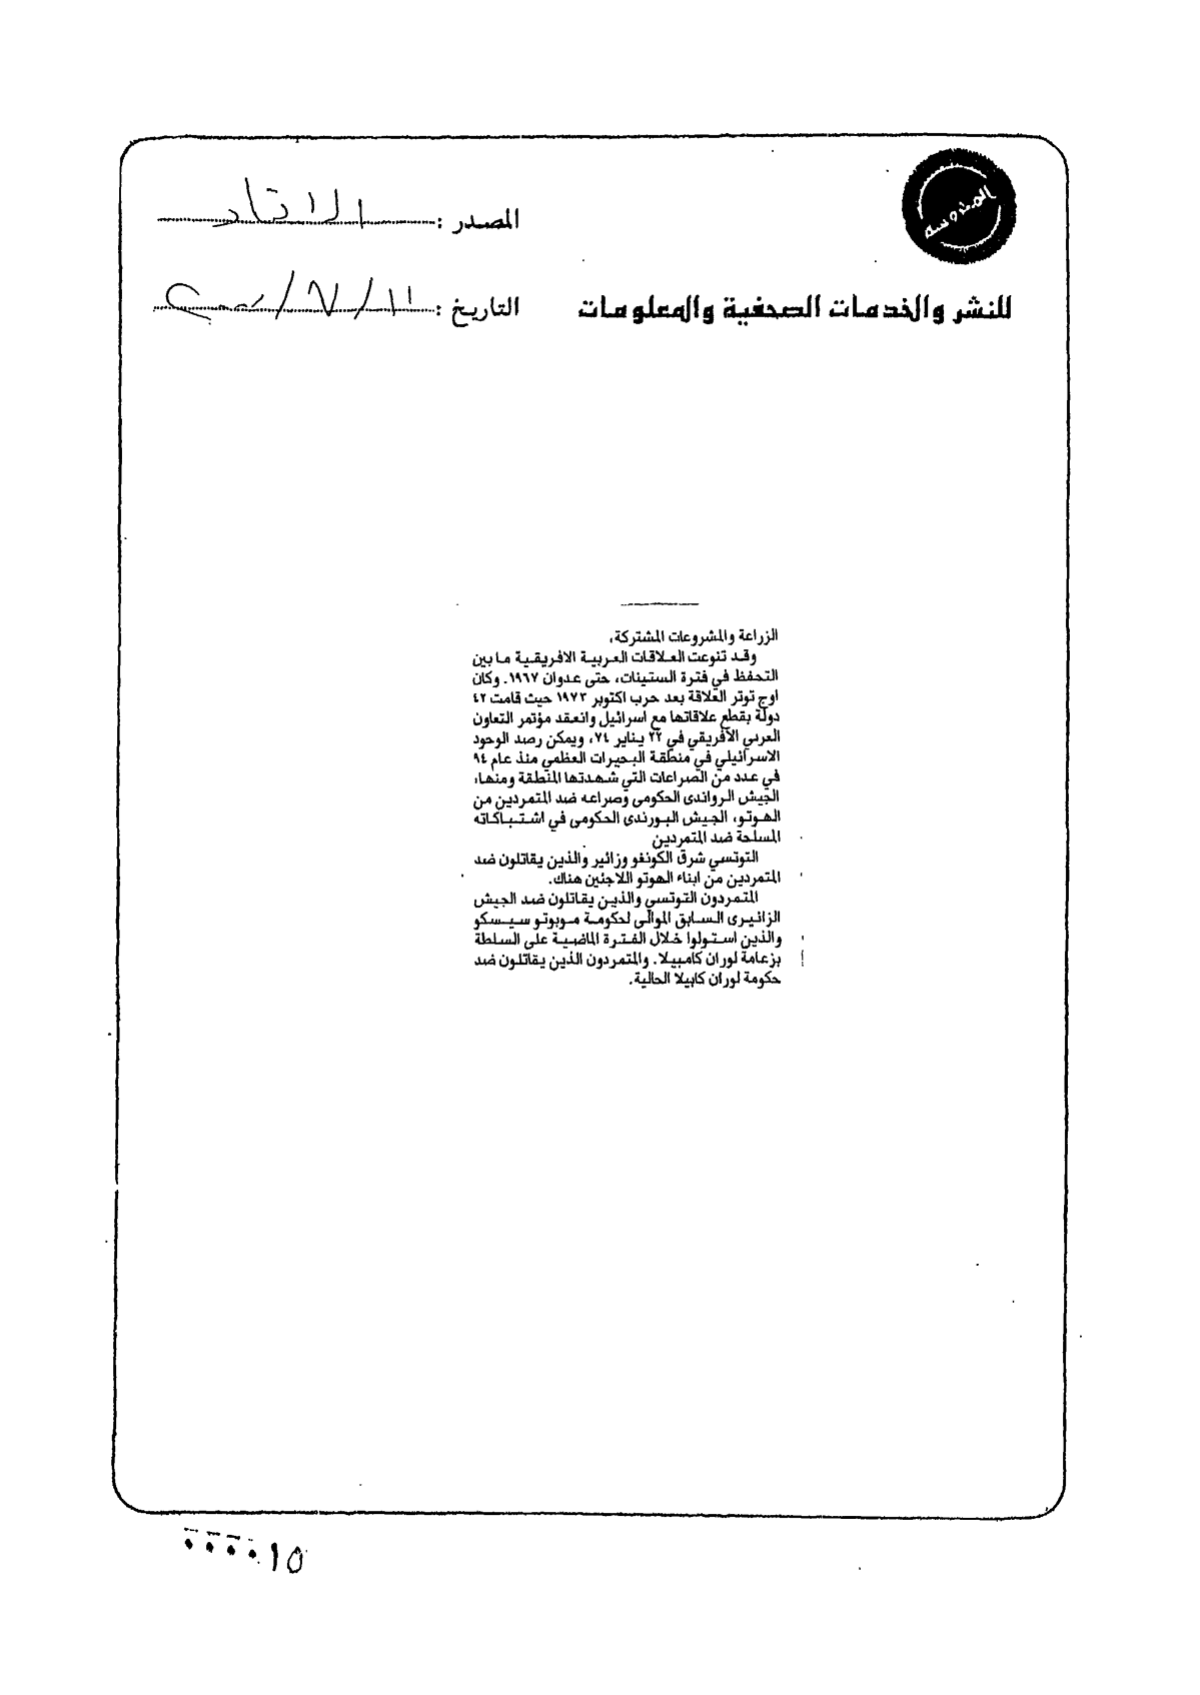 المحروسة
المصدر : الاتحاد
للنشر والخدمات الصحفية والمعلومات
التاريخ : ١١/٧/٢٠٠٠
الزراعة والمشروعات المشتركة،
وقد تنوعت العلاقات العربية الافريقية ما بين
التحفظ في فترة الستينات، حتى عدوان ١٩٦٧. وكان
اوج توتر العلاقة بعد حرب اكتوبر ١٩٧٣ حيث قامت ٤٢
دولة بقطع علاقاتها مع اسرائيل وانعقد مؤتمر التعاون
العربي الأفريقي في ٢٢ يناير ٧٤، ويمكن رصد الوجود
الاسرائيلي في منطقة البحيرات العظمي منذ عام ٩٤
في عدد من الصراعات التي شهدتها المنطقة ومنها،
الجيش الرواندى الحكومى وصراعه ضد المتمردين من
الهوتو، الجيش البورندى الحكومى في اشتباكاته
المسلحة ضد المتمردين
التوتسي شرق الكونغو وزائير والذين يقاتلون ضد
المتمردين من ابناء الهوتو اللاجئين هناك.
المتمردون التوتسي والذين يقاتلون ضد الجيش
الزائيرى السابق الموالى لحكومة موبوتو سيسكو
والذين استولوا خلال الفترة الماضية على السلطة
بزعامة لوران كامبيلا. والمتمردون الذين يقاتلون ضد
حكومة لوران كابيلا الحالية.
٠٠٠٠١٥